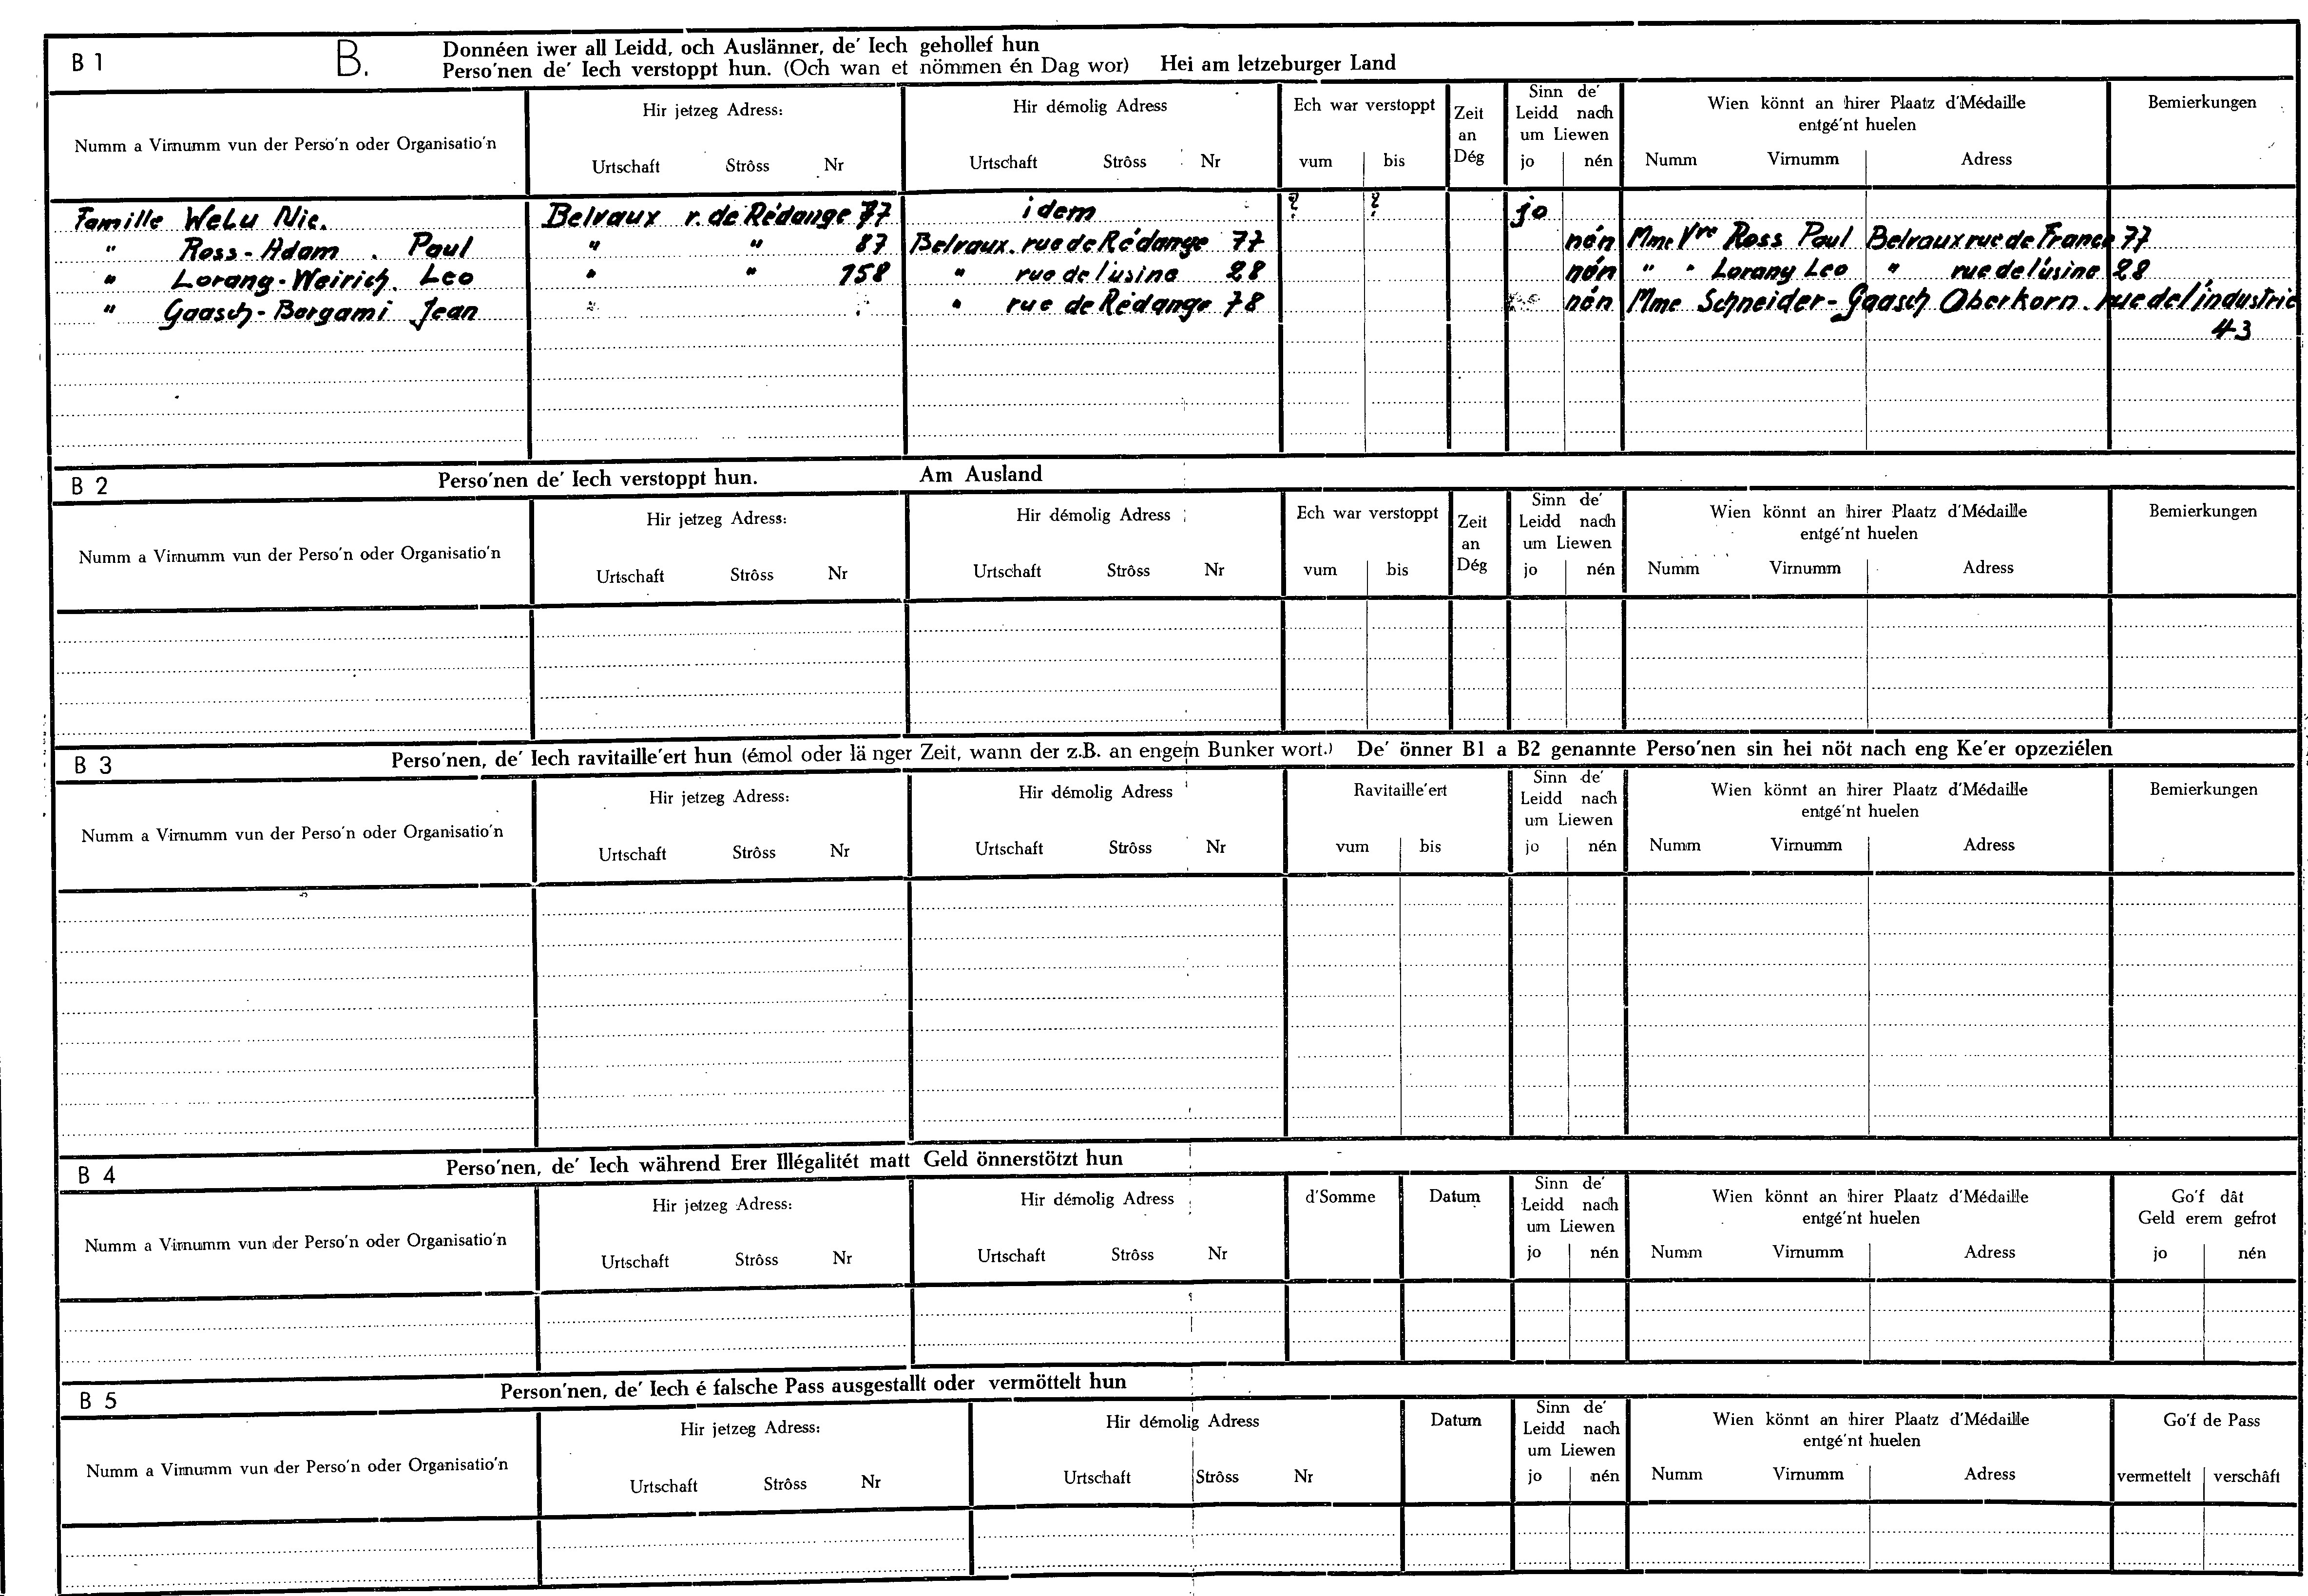 B 1 B. Donnéen iwer all Leidd, och Auslänner, de' Iech gehollef hun
Perso'nen de' Iech verstoppt hun. (Och wan et nömmen én Dag wor) Hei am letzeburger Land
Numm a Virnumm vun der Perso'n oder Organisatio'n
Hir jetzeg Adress:
Urtschaft Strôss Nr
Hir démolig Adress
Urtschaft Strôss Nr
Ech war verstoppt
vum bis
Zeit
an
Dég
Sinn de'
Leidd nach
um Liewen
jo nén
Wien könnt an hirer Plaatz d'Médaille
entgé'nt huelen
Numm Virnumm Adress
Bemierkungen
Famille Welu Nic. Belvaux r. de Rédange 77 idem ? ? jo
" Ross-Adam . Paul " " 87 Belvaux. rue de Rédange 77 nén Mme Vve Ross Paul Belvaux rue de France 77
" Lorang-Weirich. Leo " " 158 " rue de l'usine 28 nén " " Lorang Leo " rue de l'usine 28
" Gaasch-Bergami Jean " rue de Rédange 78 nén Mme Schneider-Gaasch Oberkorn. rue de l'industrie
43
B 2 Perso'nen de' Iech verstoppt hun. Am Ausland
Numm a Virnumm vun der Perso'n oder Organisatio'n
Hir jetzeg Adress:
Urtschaft Strôss Nr
Hir démolig Adress
Urtschaft Strôss Nr
Ech war verstoppt
vum bis
Zeit
an
Dég
Sinn de'
Leidd nach
um Liewen
jo nén
Wien könnt an hirer Plaatz d'Médaille
entgé'nt huelen
Numm Virnumm Adress
Bemierkungen
B 3 Perso'nen, de' Iech ravitaille'ert hun (émol oder länger Zeit, wann der z.B. an engem Bunker wort.) De' önner B1 a B2 genannte Perso'nen sin hei nöt nach eng Ke'er opzeziélen
Numm a Virnumm vun der Perso'n oder Organisatio'n
Hir jetzeg Adress:
Urtschaft Strôss Nr
Hir démolig Adress
Urtschaft Strôss Nr
Ravitaille'ert
vum bis
Sinn de'
Leidd nach
um Liewen
jo nén
Wien könnt an hirer Plaatz d'Médaille
entgé'nt huelen
Numm Virnumm Adress
Bemierkungen
B 4 Perso'nen, de' Iech während Erer Illégalitét matt Geld önnerstötzt hun
Numm a Virnumm vun der Perso'n oder Organisatio'n
Hir jetzeg Adress:
Urtschaft Strôss Nr
Hir démolig Adress
Urtschaft Strôss Nr
d'Somme
Datum
Sinn de'
Leidd nach
um Liewen
jo nén
Wien könnt an hirer Plaatz d'Médaille
entgé'nt huelen
Numm Virnumm Adress
Go'f dât
Geld erem gefrot
jo nén
B 5 Person'nen, de' Iech é falsche Pass ausgestallt oder vermöttelt hun
Numm a Virnumm vun der Perso'n oder Organisatio'n
Hir jetzeg Adress:
Urtschaft Strôss Nr
Hir démolig Adress
Urtschaft Strôss Nr
Datum
Sinn de'
Leidd nach
um Liewen
jo nén
Wien könnt an hirer Plaatz d'Médaille
entgé'nt huelen
Numm Virnumm Adress
Go'f de Pass
vermettelt verschâft